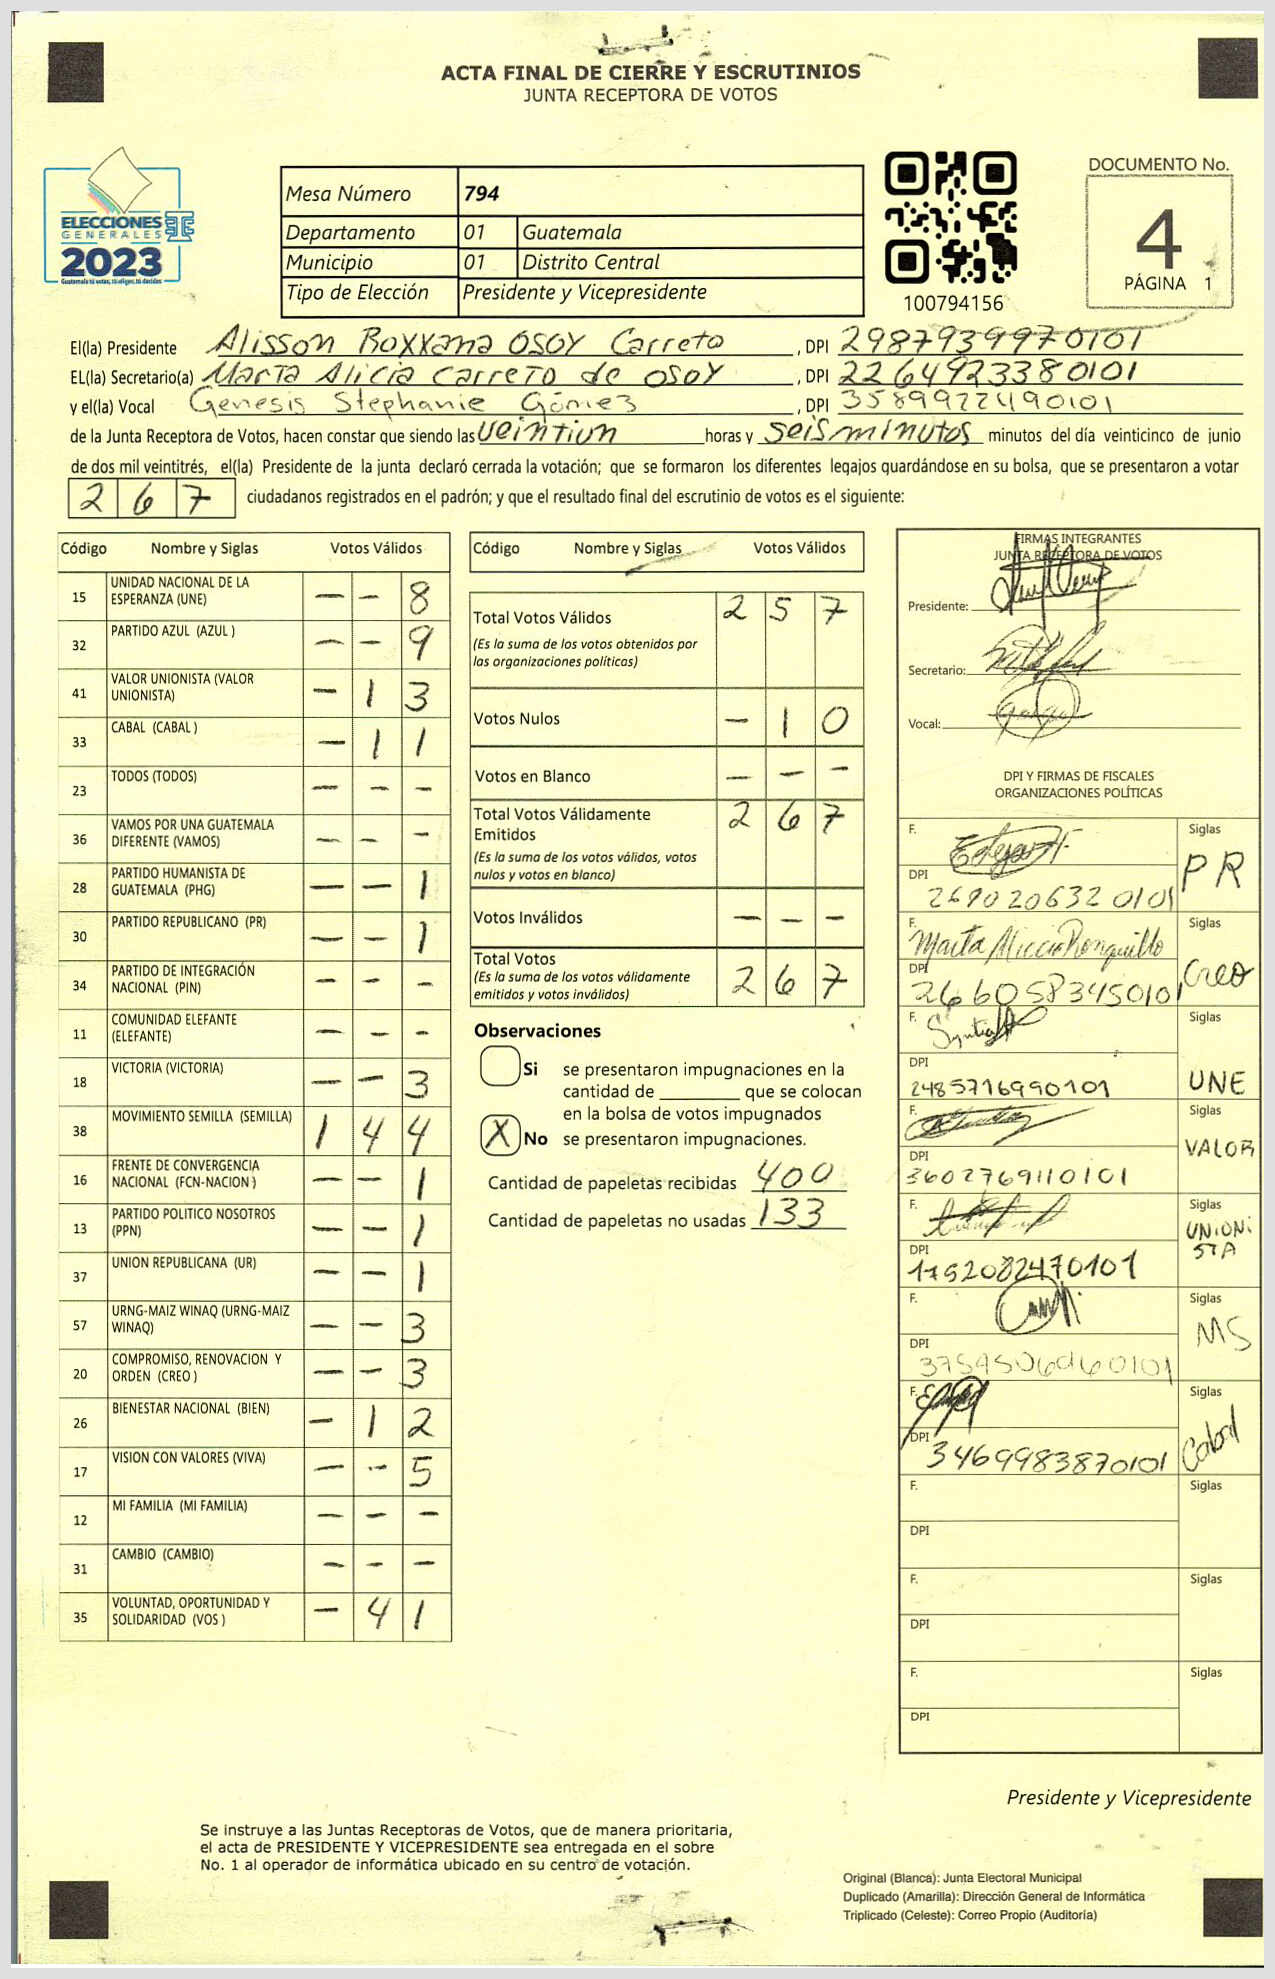 ACTA FINAL DE CIERRE Y ESCRUTINIOS
JUNTA RECEPTORA DE VOTOS
ELECCIONES
GENERALES
2023
Guatemala tú votas, tú eliges, tú decides
TSE
Mesa Número 794
Departamento 01 Guatemala
Municipio 01 Distrito Central
Tipo de Elección Presidente y Vicepresidente
100794156
DOCUMENTO No.
4
PÁGINA 1
El(la) Presidente Alisson Roxxana OSOY Carreto , DPI 2987939970101
EL(la) Secretario(a) Marta Alicia Carreto de OSOY , DPI 2264923380101
y el(la) Vocal Genesis Stephanie Gómez , DPI 3589922490101
de la Junta Receptora de Votos, hacen constar que siendo las veintiun horas y seis minutos minutos del día veinticinco de junio
de dos mil veintitrés, el(la) Presidente de la junta declaró cerrada la votación; que se formaron los diferentes legajos guardándose en su bolsa, que se presentaron a votar
2 6 7 ciudadanos registrados en el padrón; y que el resultado final del escrutinio de votos es el siguiente:
Código Nombre y Siglas Votos Válidos
15 UNIDAD NACIONAL DE LA ESPERANZA (UNE) - - 8
32 PARTIDO AZUL (AZUL ) - - 9
41 VALOR UNIONISTA (VALOR UNIONISTA) - 1 3
33 CABAL (CABAL ) - 1 1
23 TODOS (TODOS) - - -
36 VAMOS POR UNA GUATEMALA DIFERENTE (VAMOS) - - -
28 PARTIDO HUMANISTA DE GUATEMALA (PHG) - - 1
30 PARTIDO REPUBLICANO (PR) - - 1
34 PARTIDO DE INTEGRACIÓN NACIONAL (PIN) - - -
11 COMUNIDAD ELEFANTE (ELEFANTE) - - -
18 VICTORIA (VICTORIA) - - 3
38 MOVIMIENTO SEMILLA (SEMILLA) 1 4 4
16 FRENTE DE CONVERGENCIA NACIONAL (FCN-NACION ) - - 1
13 PARTIDO POLITICO NOSOTROS (PPN) - - 1
37 UNION REPUBLICANA (UR) - - 1
57 URNG-MAIZ WINAQ (URNG-MAIZ WINAQ) - - 3
20 COMPROMISO, RENOVACION Y ORDEN (CREO ) - - 3
26 BIENESTAR NACIONAL (BIEN) - 1 2
17 VISION CON VALORES (VIVA) - - 5
12 MI FAMILIA (MI FAMILIA) - - -
31 CAMBIO (CAMBIO) - - -
35 VOLUNTAD, OPORTUNIDAD Y SOLIDARIDAD (VOS ) - 4 1
Código Nombre y Siglas Votos Válidos
Total Votos Válidos 2 5 7
(Es la suma de los votos obtenidos por
las organizaciones políticas)
Votos Nulos - 1 0
Votos en Blanco - - -
Total Votos Válidamente
Emitidos 2 6 7
(Es la suma de los votos válidos, votos
nulos y votos en blanco)
Votos Inválidos - - -
Total Votos
(Es la suma de los votos válidamente
emitidos y votos inválidos) 2 6 7
Observaciones
Si se presentaron impugnaciones en la
cantidad de ________ que se colocan
en la bolsa de votos impugnados
X No se presentaron impugnaciones.
Cantidad de papeletas recibidas 400
Cantidad de papeletas no usadas 133
FIRMAS INTEGRANTES
JUNTA RECEPTORA DE VOTOS
Presidente:
Secretario:
Vocal:
DPI Y FIRMAS DE FISCALES
ORGANIZACIONES POLÍTICAS
F. Siglas
DPI 2690206320101 PR
F. Marta Alicia Ronquillo Siglas
DPI 2660583450101 Creo
F. Siglas
DPI 2485716990101 UNE
F. Siglas
DPI 3602769110101 VALOR
F. Siglas
DPI 1752082470101 UNIONISTA
F. Siglas
DPI MS
F. Siglas
DPI 3469983870101 Cabal
F. Siglas
DPI
F. Siglas
DPI
F. Siglas
DPI
Presidente y Vicepresidente
Se instruye a las Juntas Receptoras de Votos, que de manera prioritaria,
el acta de PRESIDENTE Y VICEPRESIDENTE sea entregada en el sobre
No. 1 al operador de informática ubicado en su centro de votación.
Original (Blanca): Junta Electoral Municipal
Duplicado (Amarilla): Dirección General de Informática
Triplicado (Celeste): Correo Propio (Auditoría)